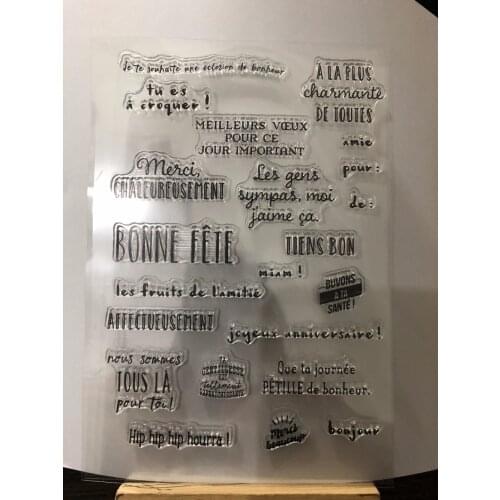 Je te souhaite une éclosion de bonheur
tu es
à croquer !
À LA PLUS
charmante
DE TOUTES
MEILLEURS VŒUX
POUR CE
JOUR IMPORTANT
amie
pour :
de :
Merci,
CHALEUREUSEMENT
Les gens
sympas, moi
j'aime ça.
BONNE FÊTE
TIENS BON
miam !
les fruits de l'amitié
BUVONS
À TA
SANTÉ !
AFFECTUEUSEMENT
joyeux anniversaire !
nous sommes
TOUS LÀ
pour toi !
tellement
Que ta journée
PÉTILLE de bonheur.
Hip hip hip hourra !
Merci
beaucoup
bonjour